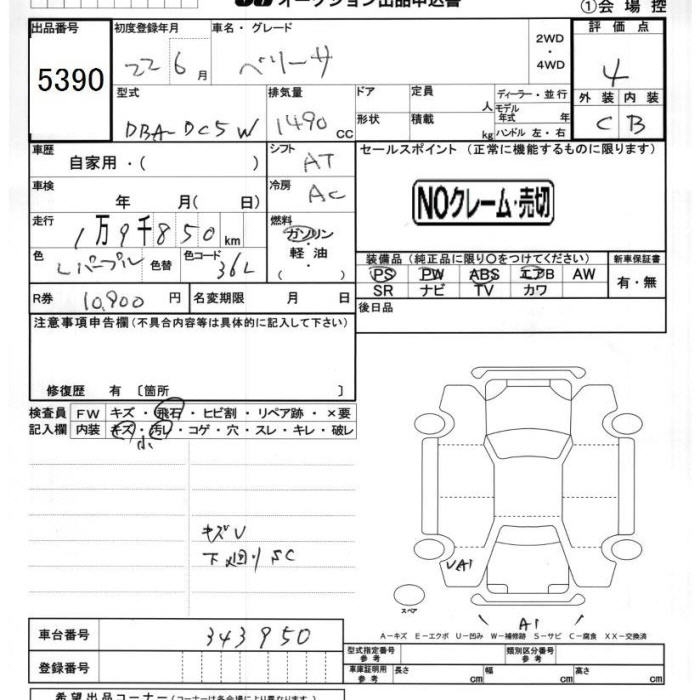 オークション出品申込書
①会場控
出品番号
5390
初度登録年月
22 6月
車名・グレード
ベリーサ
2WD
・
4WD
評価点
4
外装 内装
C B
型式
DBA-DC5W
排気量
1490 CC
ドア
形状
定員 人
積載 kg
ディーラー・並行
モデル年式 年
ハンドル 左・右
車歴
自家用・( )
シフト
AT
セールスポイント (正常に機能するものに限ります)
NOクレーム・売切
車検
年 月( 日)
冷房
AC
走行
1万9千850km
燃料
ガソリン
・
軽油
( ・ )
色
Lパープル
色替
色コード
36L
装備品 (純正品に限り○をつけてください)
PS PW ABS エアB AW
SR ナビ TV カワ
新車保証書
有・無
R券 10,900 円
名変期限 月 日
後日品
注意事項申告欄 (不具合内容等は具体的に記入して下さい)
修復歴 有 〔箇所 〕
検査員記入欄
FW キズ・飛石・ヒビ割・リペア跡・×要
内装 キズ・汚れ・コゲ・穴・スレ・キレ・破レ
小
キズU
下廻りSC
UA1
スペア
A1
A－キズ E－エクボ U－凹み W－補修跡 S－サビ C－腐食 XX－交換済
車台番号
343950
登録番号
型式指定番号 参考
類別区分番号 参考
車庫証明用 参考
長さ cm
幅 cm
高さ cm
希望出品コーナー (コーナーは各会場により異なります)